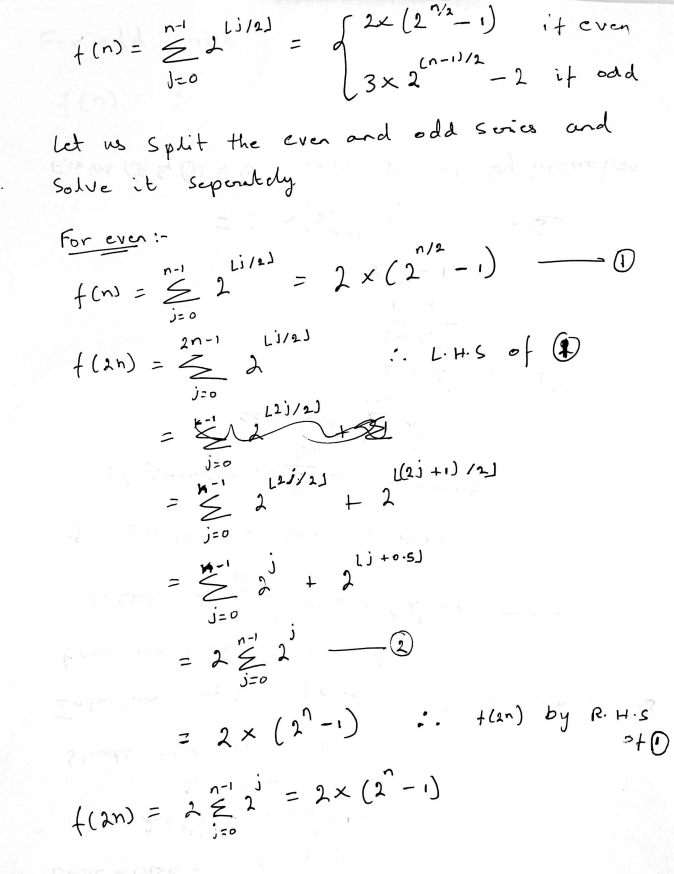 f(n) = Σ_{j=0}^{n-1} 2^{⌊j/2⌋} = { 2×(2^{n/2} - 1) if even
3×2^{(n-1)/2} - 2 if odd
Let us split the even and odd series and
Solve it seperately
For even :-
f(n) = Σ_{j=0}^{n-1} 2^{⌊j/2⌋} = 2×(2^{n/2} - 1) —— ①
f(2n) = Σ_{j=0}^{2n-1} 2^{⌊j/2⌋} ∴ L.H.S of ①
= Σ_{j=0}^{n-1} 2^{⌊2j/2⌋} + 2^{⌊(2j+1)/2⌋}
= Σ_{j=0}^{n-1} 2^{j} + 2^{⌊j+0.5⌋}
= 2 Σ_{j=0}^{n-1} 2^{j} —— ②
= 2×(2^{n} - 1) ∴ f(2n) by R.H.S
of ①
f(2n) = 2 Σ_{j=0}^{n-1} 2^{j} = 2×(2^{n} - 1)